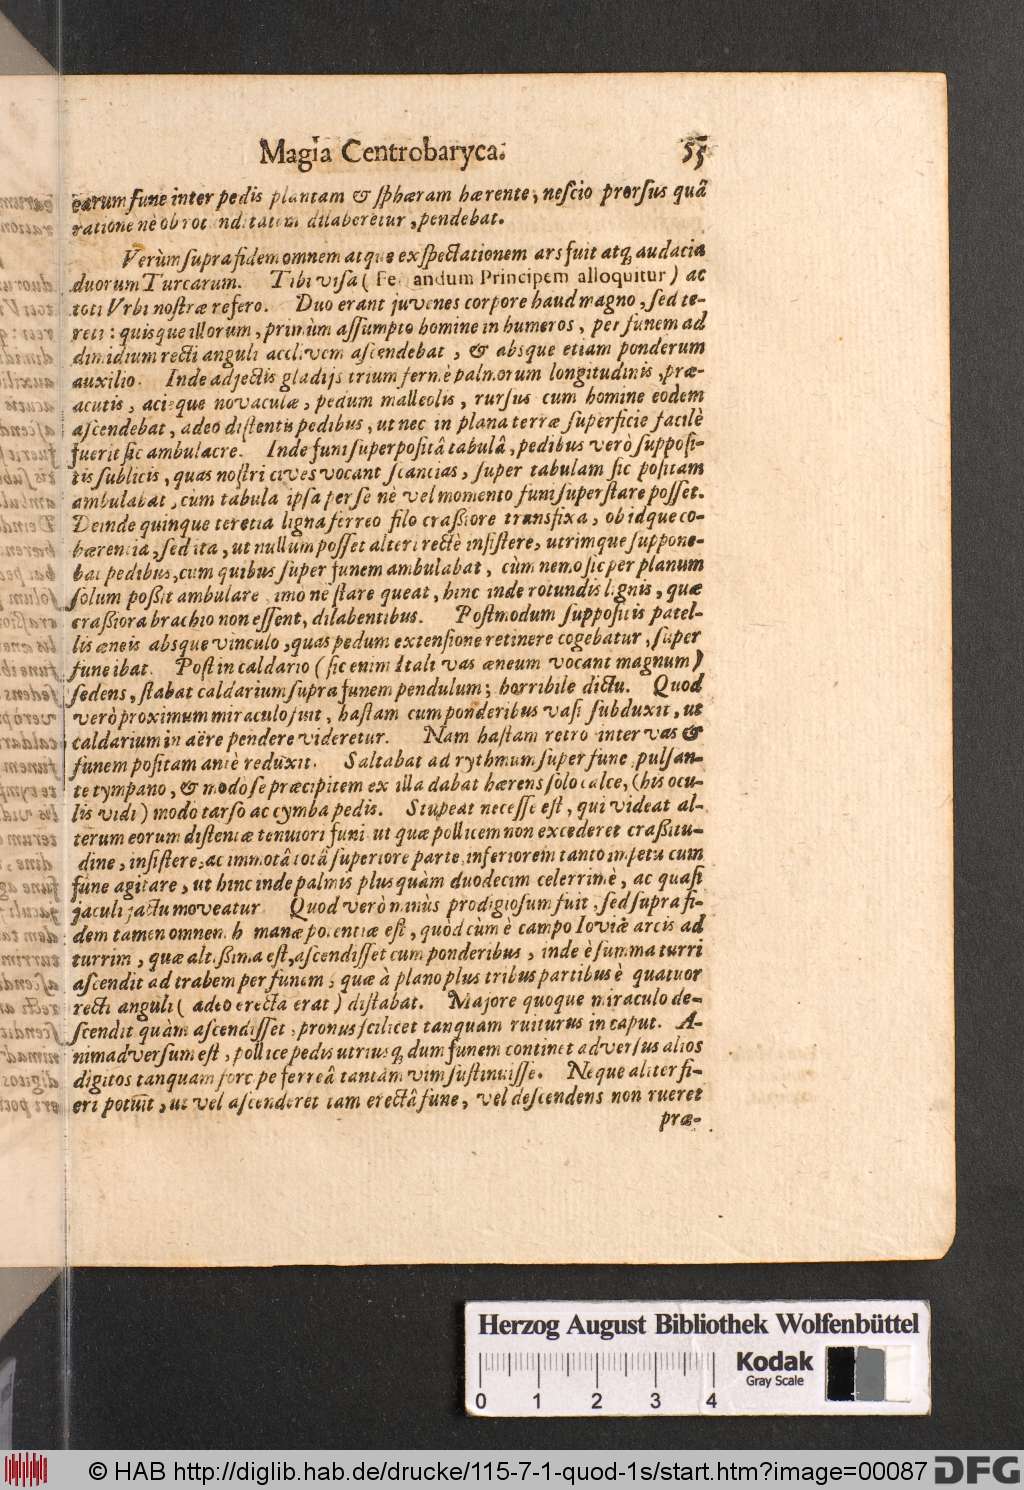 Magia Centrobaryca. 55
earum fune inter pedis plantam & sphæram hærente, nescio prorsus quâ
ratione nè ob rotunditatem dilaberetur, pendebat.
Verùm supra fidem omnem atque exspectationem ars fuit atq; audacia
duorum Turcarum. Tibi visa (Ferdinandum Principem alloquitur) ac
toti Vrbi nostræ refero. Duo erant juvenes corpore haud magno, sed te-
reti: quisque illorum, primùm assumpto homine in humeros, per funem ad
dimidium recti anguli acclivem ascendebat, & absque etiam ponderum
auxilio. Inde adjectis gladijs trium fermè palmorum longitudinis, præ-
acutis, acieque novaculæ, pedum malleolis, rursus cum homine eodem
ascendebat, adeo distentis pedibus, ut nec in plana terræ superficie facilè
fuerit sic ambulare. Inde funi superpositâ tabulâ, pedibus verò supposi-
tis sublicis, quas nostri cives vocant scancias, super tabulam sic positam
ambulabat, cum tabula ipsa per se nè vel momento funi superstare posset.
Deinde quinque teretia ligna ferreo filo craßiore transfixa, ob idque co-
hærentia, sed ita, ut nullum posset alteri rectè insistere, utrimque suppone-
bat pedibus, cum quibus super funem ambulabat, cùm nemo sic per planum
solum poßit ambulare, imo nè stare queat, hinc inde rotundis lignis, quæ
craßiora brachio non essent, dilabentibus. Postmodum suppositis patel-
lis æneis absque vinculo, quas pedum extensione retinere cogebatur, super
fune ibat. Post in caldario (sic enim Itali vas æneum vocant magnum)
sedens, stabat caldarium supra funem pendulum; horribile dictu. Quod
verò proximum miraculo fuit, hastam cum ponderibus vasi subduxit, ut
caldarium in aëre pendere videretur. Nam hastam retro inter vas &
funem positam antè reduxit. Saltabat ad rythmum super fune pulsan-
te tympano, & modo se præcipitem ex illa dabat hærens solo calce, (his ocu-
lis vidi) modo tarso ac cymba pedis. Stupeat necesse est, qui videat al-
terum eorum distentæ tenuiori funi ut quæ pollicem non excederet craßitu-
dine, insistere, ac immotâ totâ superiore parte inferiorem tanto impetu cum
fune agitare, ut hinc inde palmis plus quàm duodecim celerrimè, ac quasi
jaculi jactu moveatur. Quod verò minùs prodigiosum fuit, sed supra fi-
dem tamen omnem humanæ potentiæ est, quòd cùm è campo Ioviæ arcis ad
turrim, quæ altißima est, ascendisset cum ponderibus, inde è summa turri
ascendit ad trabem per funem, quæ à plano plus tribus partibus è quatuor
recti anguli (adeo erecta erat) distabat. Majore quoque miraculo de-
scendit quàm ascendisset, pronus scilicet tanquam ruiturus in caput. A-
nimadversum est, pollice pedis utriusq; dum funem continet adversus alios
digitos tanquam forcipe ferreâ tantam vim sustinuisse. Neque aliter fi-
eri potuit, ut vel ascenderet tam erectâ fune, vel descendens non rueret
præ-
Herzog August Bibliothek Wolfenbüttel
0 1 2 3 4
Kodak
Gray Scale
© HAB http://diglib.hab.de/drucke/115-7-1-quod-1s/start.htm?image=00087
DFG